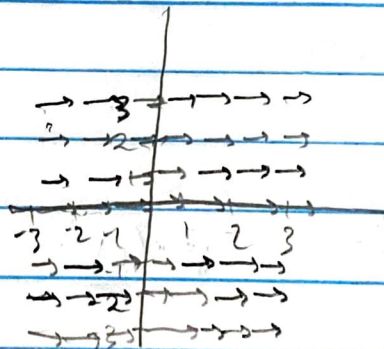 3
2
1
-3 -2 -1 1 2 3
-1
-2
-3